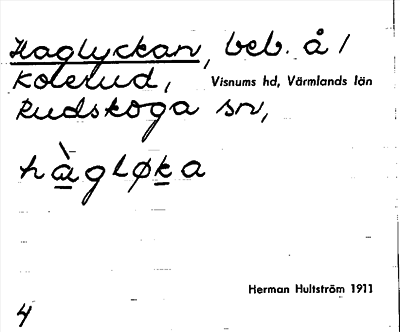 Haglyckan, beb. å /
Kolerud, Visnums hd, Värmlands län
Rudskoga sn,
hàgløka
Herman Hultström 1911
4